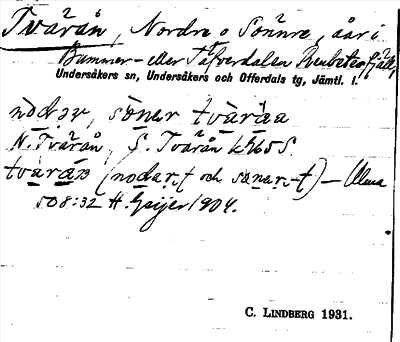 Tvärån, Nordre o Sönnre, åar i
Bummer- eller Täfverdalen Renbetesfjäll,
Undersåkers sn, Undersåkers och Offerdals tg, Jämtl. l.
nòdər, sönər tvä̀råa
N. Tvärån, S. Tvärån k2655.
tvärån (nodar,t och sønar,-t) – Ulma
508:32 H. Geijer 1904.
C. LINDBERG 1931.